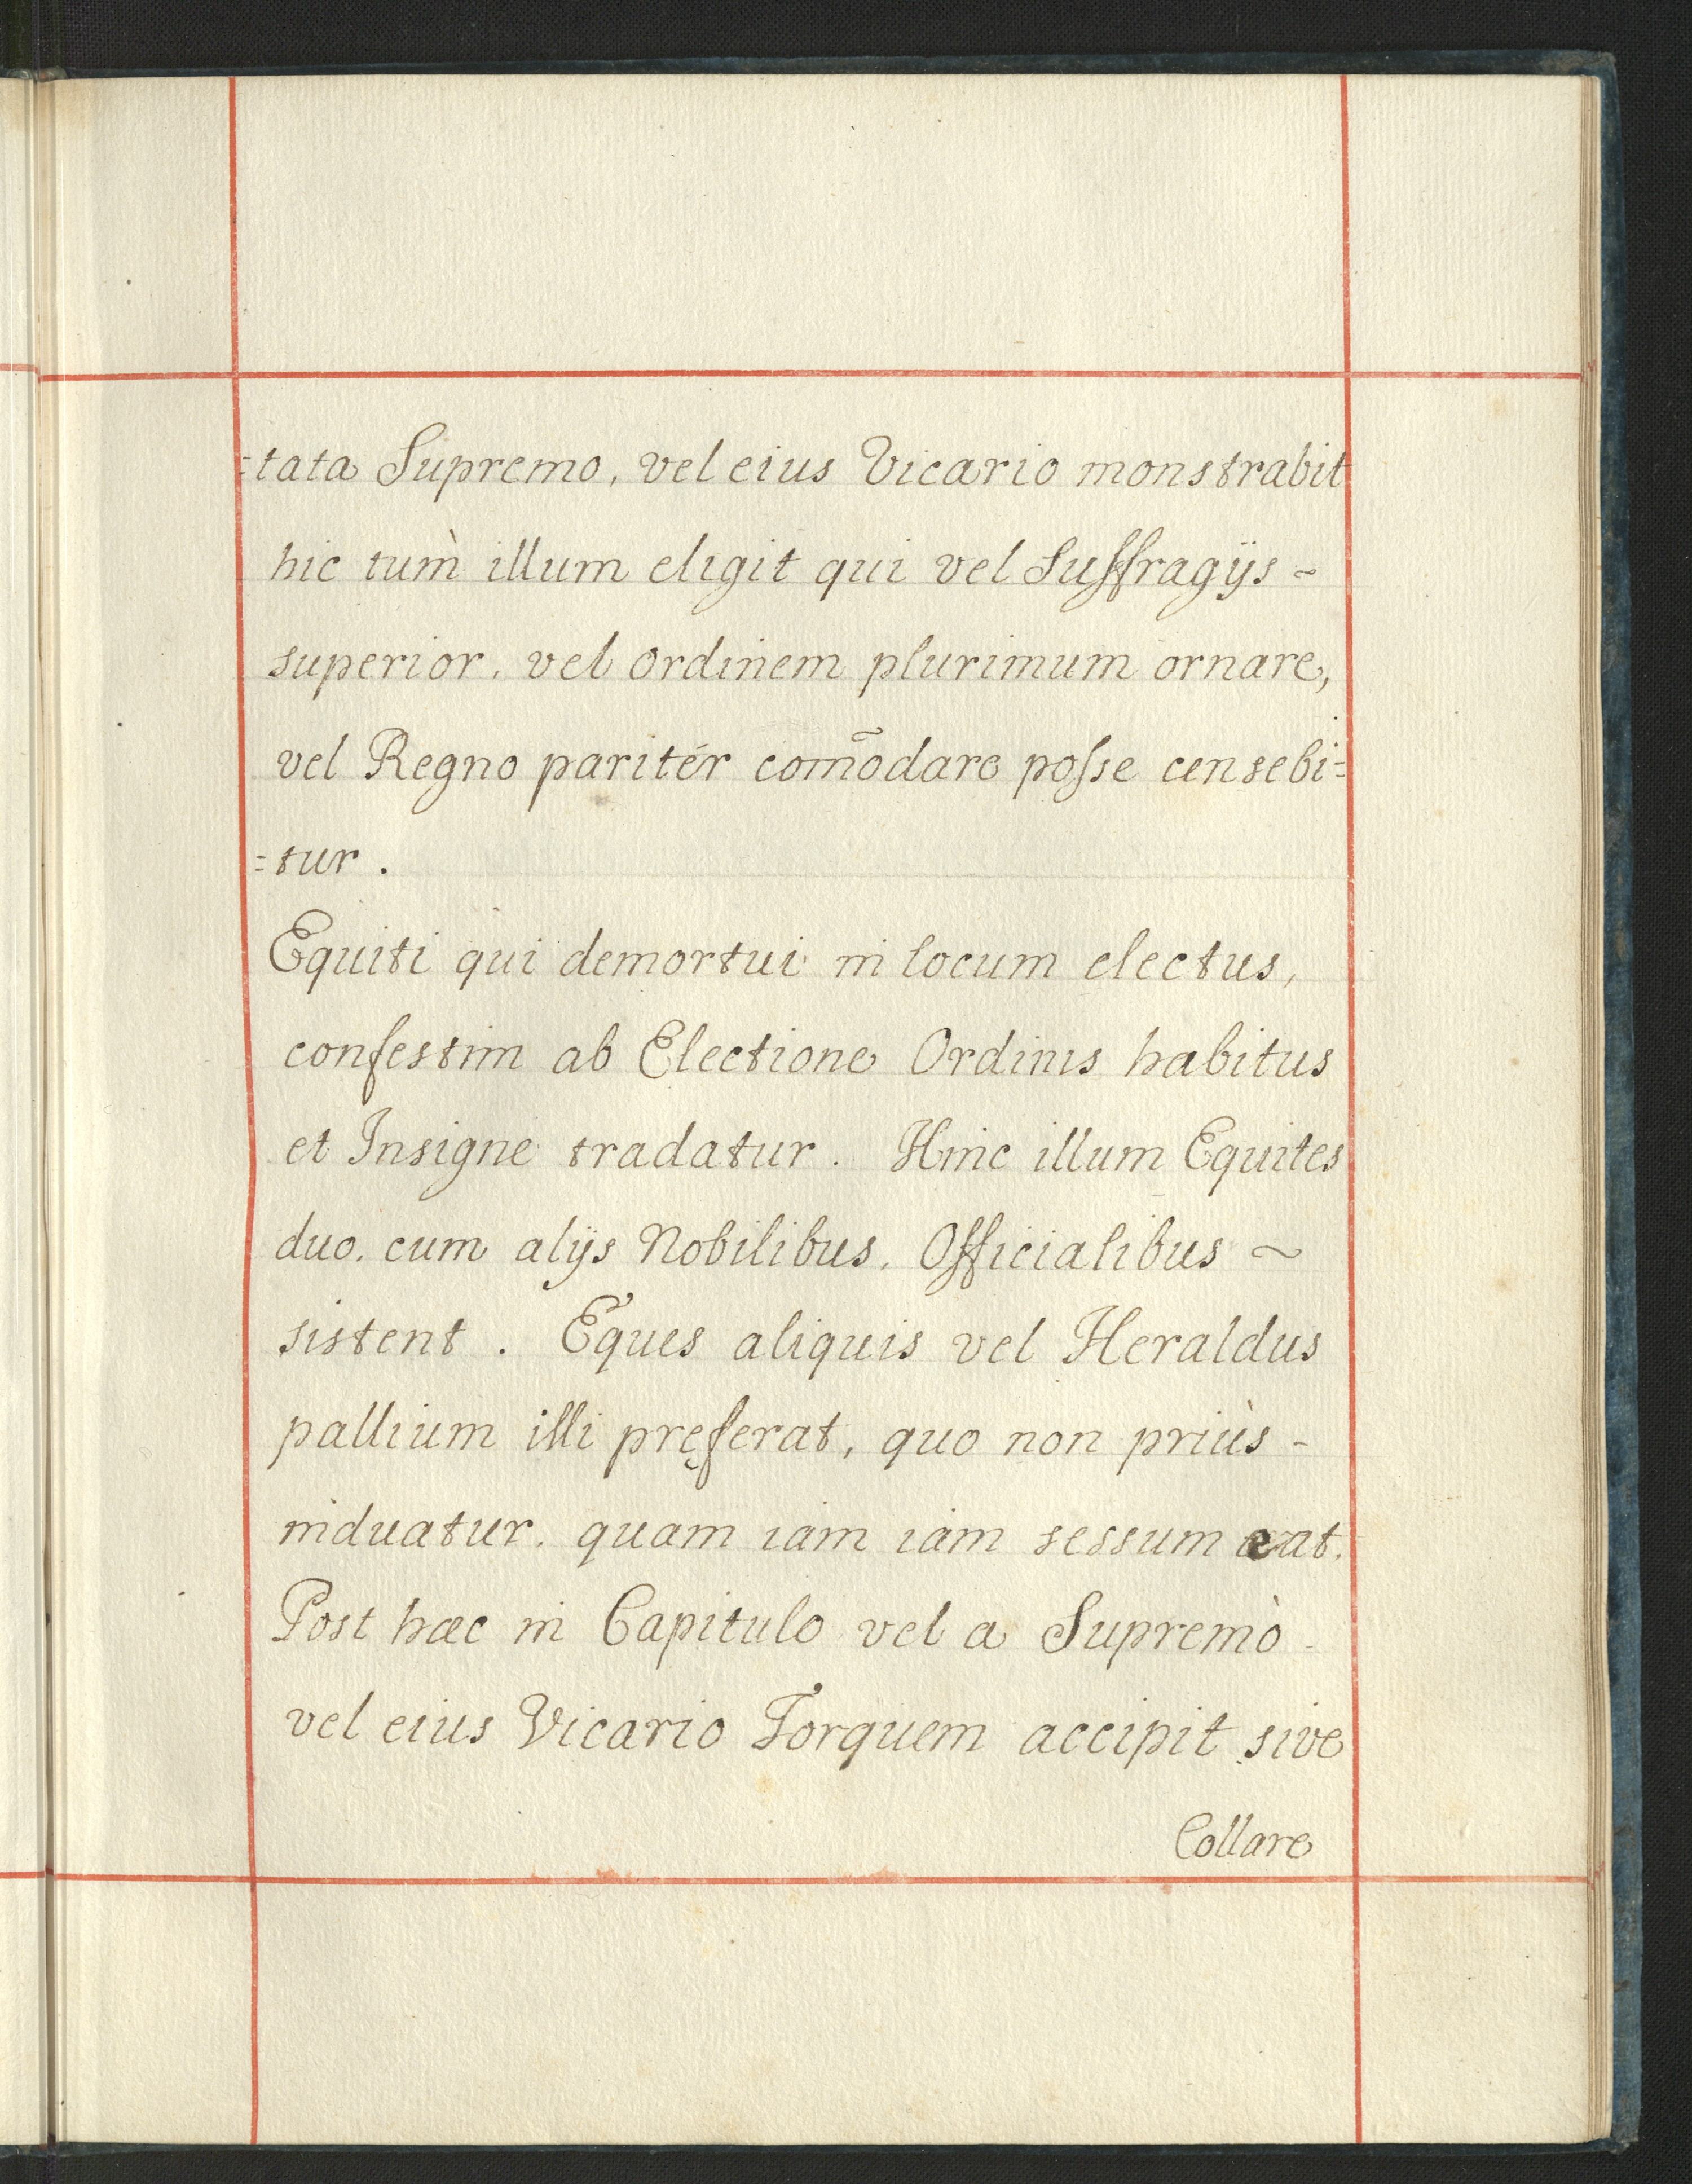 =tata Supremo, vel eius Vicario monstrabit
hic tum̀ illum eligit qui vel Suffragijs ~
superior. vel ordinem plurimum ornare,
vel Regno paritér com̃odare poſse censebi=
=tur.
Equiti qui demortui in locum electus,
confestim ab Electione Ordinis habitus
et Insigne tradatur. Hinc illum Equites
duo. cum alijs Nobilibus. Officialibus ~
sistent. Eques aliquis vel Heraldus
pallium illi pręferat, quo non priùs -
induatur. quam iam iam sessum eat.
Post hæc in Capitulo vel a Supremò -
vel eius Vicario Torquem accipit sive
Collare